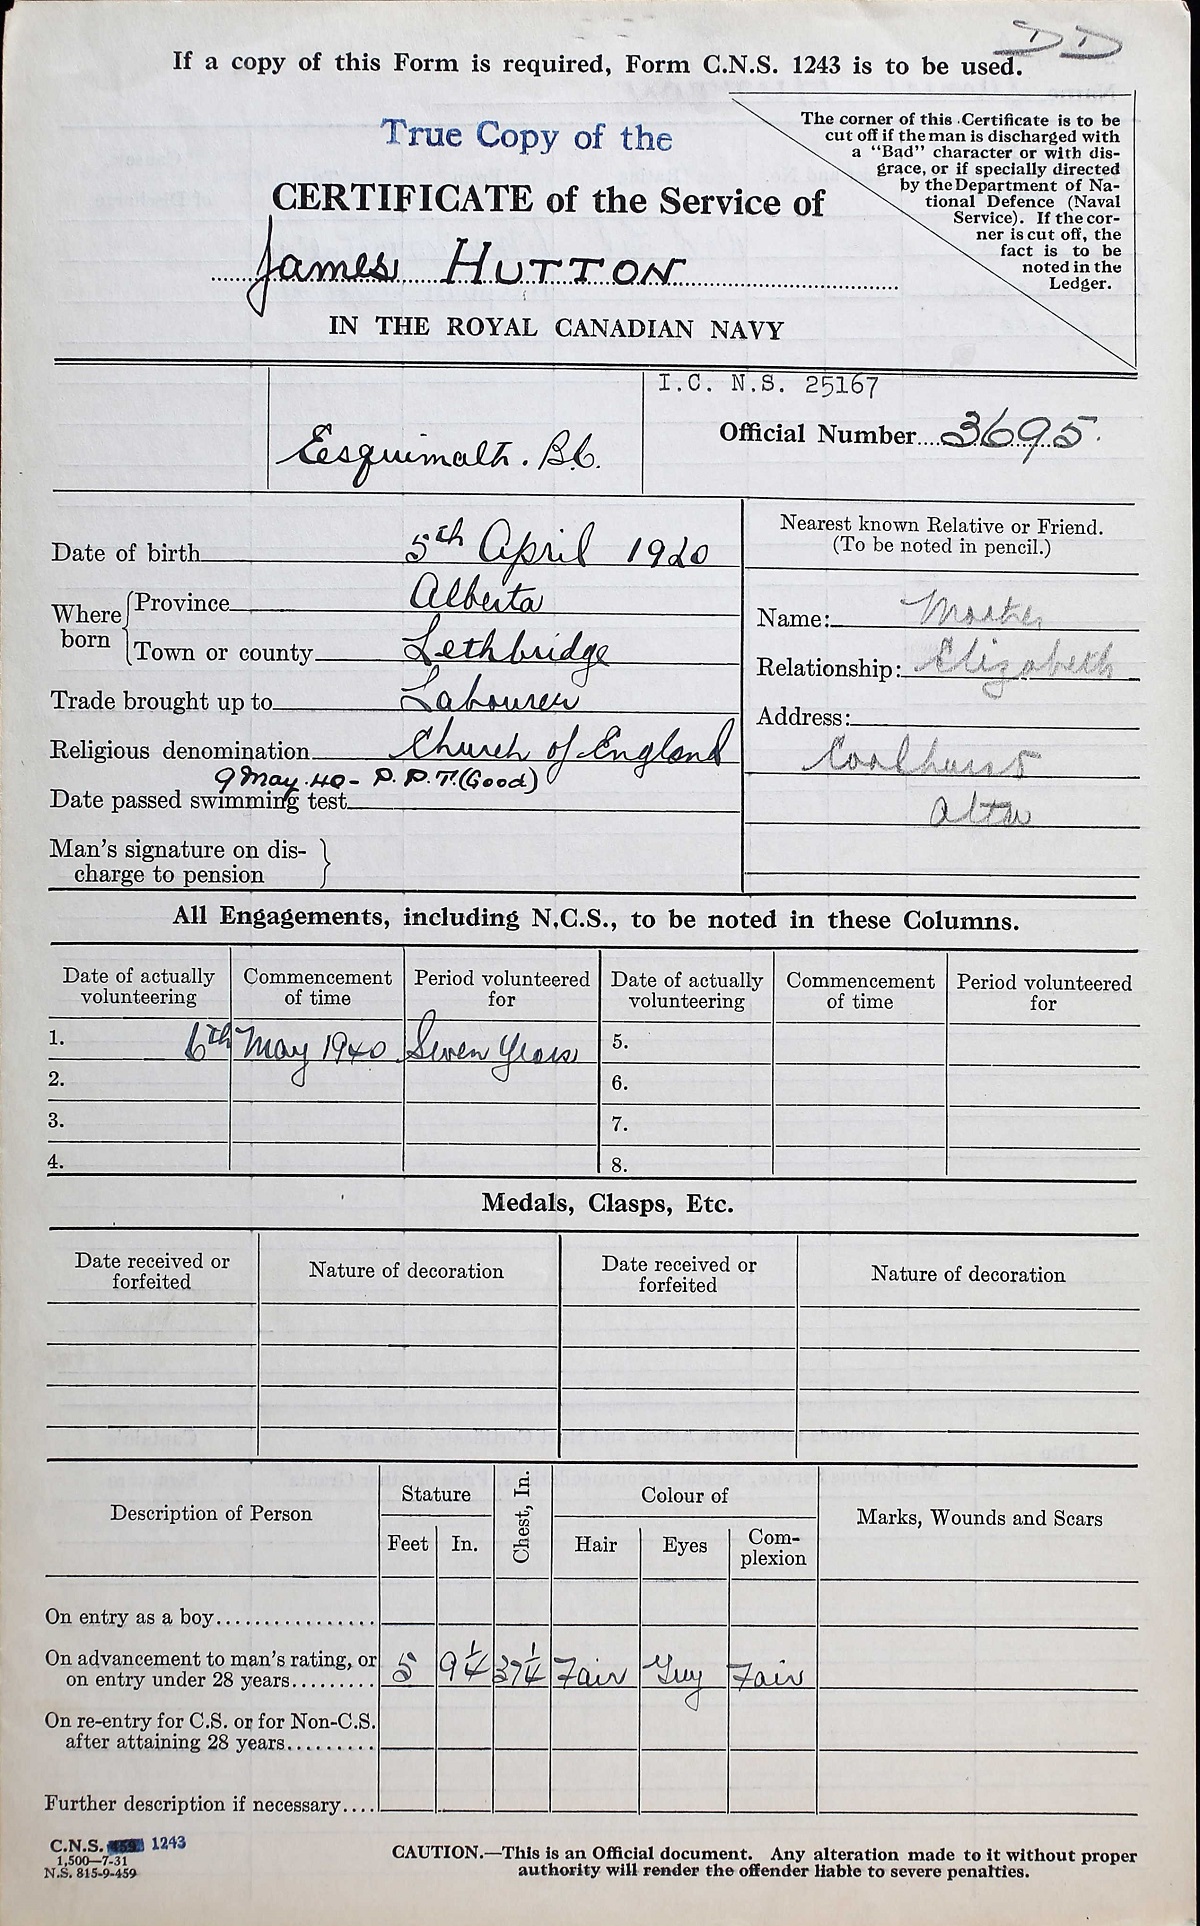 DD
If a copy of this Form is required, Form C.N.S. 1243 is to be used.
True Copy of the
CERTIFICATE of the Service of
James HUTTON
IN THE ROYAL CANADIAN NAVY
The corner of this Certificate is to be
cut off if the man is discharged with
a "Bad" character or with dis-
grace, or if specially directed
by the Department of Na-
tional Defence (Naval
Service). If the cor-
ner is cut off, the
fact is to be
noted in the
Ledger.
I.C. N.S. 25167
Esquimalt. B.C.
Official Number 3695.
Date of birth 5th April 1920
Where born
Province Alberta
Town or county Lethbridge
Trade brought up to Labourer
Religious denomination Church of England
9 May.40- P.P.T.(Good)
Date passed swimming test
Man's signature on dis-
charge to pension
Nearest known Relative or Friend.
(To be noted in pencil.)
Name: Mother
Relationship: Elizabeth
Address:
Coalhurst
Alta
All Engagements, including N.C.S., to be noted in these Columns.
Date of actually volunteering Commencement of time Period volunteered for Date of actually volunteering Commencement of time Period volunteered for
1. 6th May 1940 Seven Years 5.
2. 6.
3. 7.
4. 8.
Medals, Clasps, Etc.
Date received or forfeited Nature of decoration Date received or forfeited Nature of decoration
Description of Person Stature Chest, In. Colour of Marks, Wounds and Scars
Feet In. Hair Eyes Com-
plexion
On entry as a boy
On advancement to man's rating, or
on entry under 28 years 5 9¼ 37¼ Fair Grey Fair
On re-entry for C.S. or for Non-C.S.
after attaining 28 years
Further description if necessary
C.N.S. 1243
1,500—7-31
N.S. 815-9-459
CAUTION.—This is an Official document. Any alteration made to it without proper
authority will render the offender liable to severe penalties.